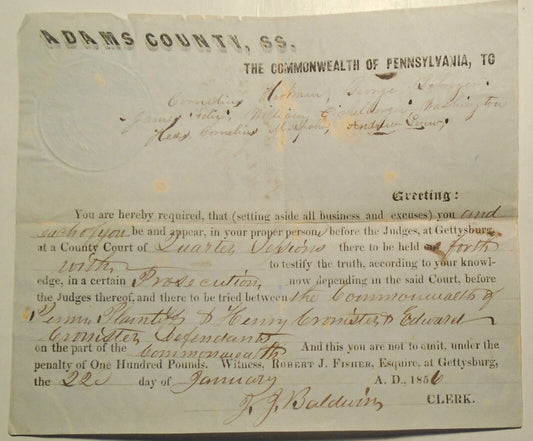 ADAMS COUNTY, SS.
THE COMMONWEALTH OF PENNSYLVANIA, TO
Cornelius George
James William Washington
Cornelius Andrew
Greeting:
You are hereby required, that (setting aside all business and excuses) you and
each of you be and appear, in your proper persons before the Judges, at Gettysburg,
at a County Court of Quarter Sessions there to be held forth
with to testify the truth, according to your knowl-
edge, in a certain Prosecution now depending in the said Court, before
the Judges thereof, and there to be tried between the Commonwealth of
Penna Plaintiff & Henry Cronister & Edward
Cronister Defendants
on the part of the Commonwealth And this you are not to omit, under the
penalty of One Hundred Pounds. Witness, ROBERT J. FISHER, Esquire, at Gettysburg,
the 22 day of January A. D., 1856
J. J. Baldwin CLERK.